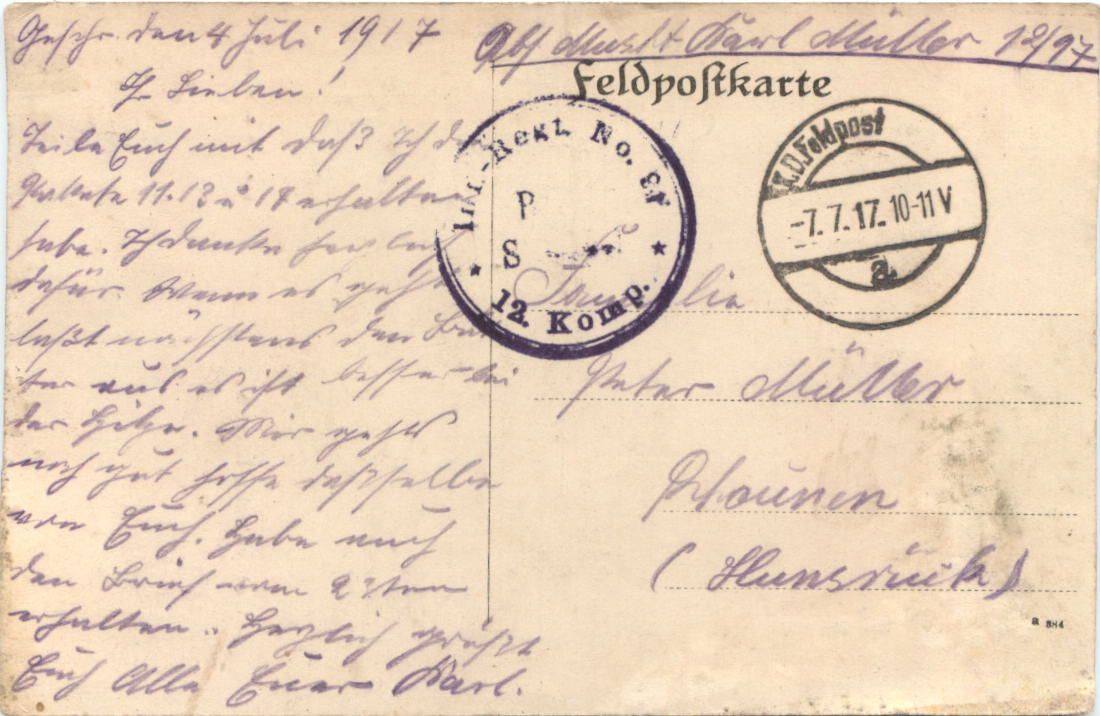 Geschr. den 4 Juli 1917
Ihr Lieben!
Teile Euch mit daß Ich die
Pakete 11. 13 u 14 erhalten
habe. Ich danke herzlich
dafür. Wenn es geht
laßt nächstens den
aus es ist besser bei
der Hitze. Mir gehts
noch gut hoffe dasselbe
von Euch. Habe auch
den Brief vom ten
erhalten. Herzlich grüßt
Euch Alle Euer Karl.
Abs Muskt Karl Müller 12/97
Feldpostkarte
Inf.-Regt. No.
P
S
12. Komp.
K.D.Feldpost
-7.7.17. 10-11 V
a.
Familie
Peter Müller
Rhaunen
(Hunsrück)
a 884